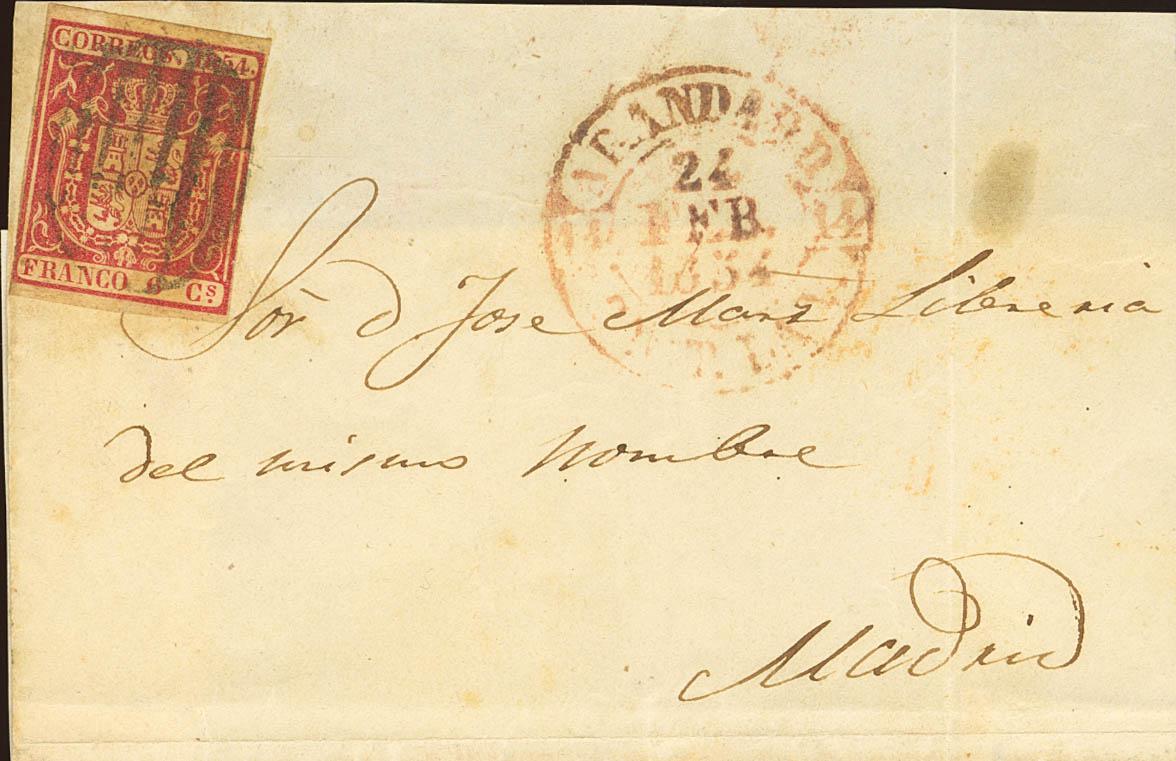 CORREOS. 1854.
FRANCO 6 Cs.
ARANDA D D
24
FEB.
1854
Sor. d Jose Libreria
del mismo nombre
Madrid